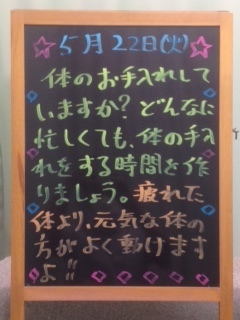 5月22日(火)
体のお手入れして
いますか?どんなに
忙しくても、体の手入
れをする時間を作
りましょう。疲れた
体より、元気な体の
方がよく動けます
よ!!